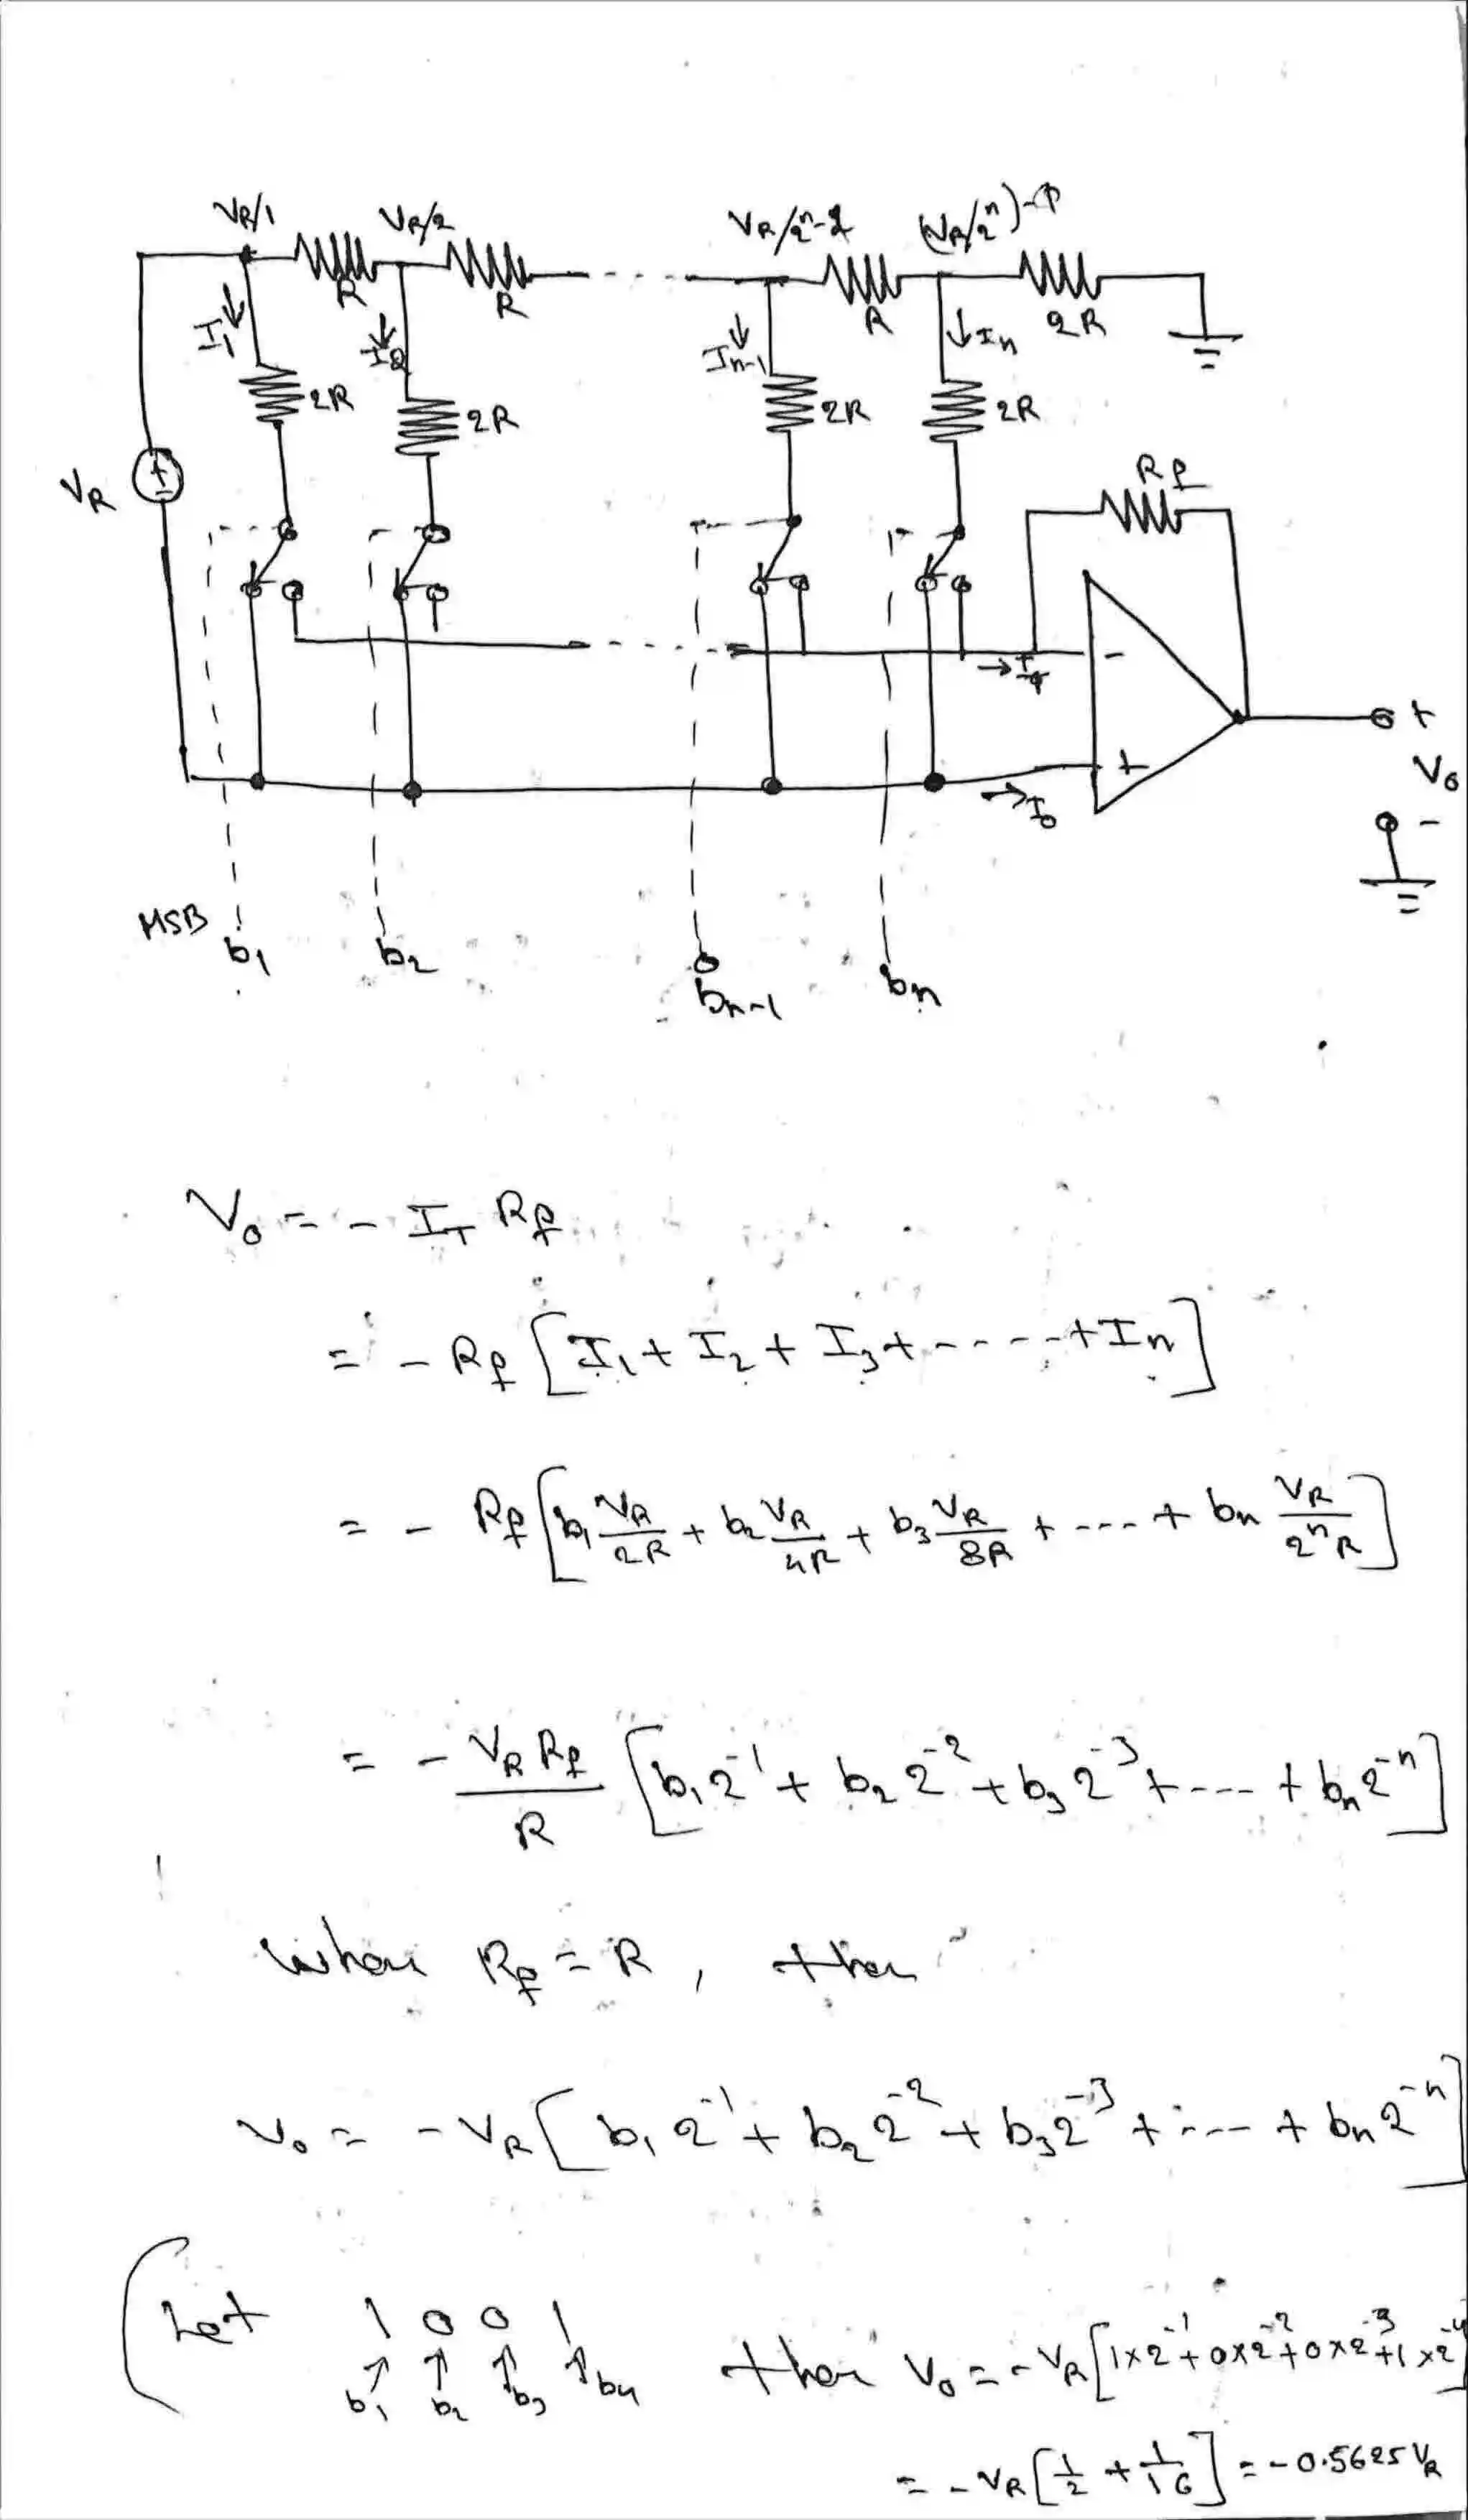 VR/1 VR/2 VR/2ⁿ⁻² (VR/2ⁿ)-1
R R R 2R
I₁ I₂ Iₙ₋₁ Iₙ
2R 2R 2R 2R
VR + -
Rf
-
→
+
→I₀
+
V₀
-
MSB
b₁ b₂ bₙ₋₁ bₙ
V₀ = - I_T Rf
= - Rf [I₁ + I₂ + I₃ + - - - - + Iₙ]
= - Rf [b₁ VR/2R + b₂ VR/4R + b₃ VR/8R + - - - + bₙ VR/2ⁿR]
= - VR Rf/R [b₁ 2⁻¹ + b₂ 2⁻² + b₃ 2⁻³ + - - - + bₙ 2⁻ⁿ]
When Rf = R , then
V₀ = - VR [b₁ 2⁻¹ + b₂ 2⁻² + b₃ 2⁻³ + - - - + bₙ 2⁻ⁿ]
(Let 1 0 0 1
b₁ b₂ b₃ b₄ then V₀ = - VR [1×2⁻¹ + 0×2⁻² + 0×2⁻³ + 1×2⁻⁴]
= - VR [1/2 + 1/16] = - 0.5625 VR